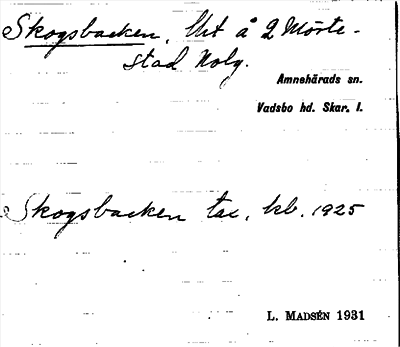 Skogsbacken, Uht å 2 Mörte-
stad Nolg.
Amnehärads sn.
Vadsbo hd. Skar. l.
Skogsbacken tax. kb. 1925
L. MADSÉN 1931